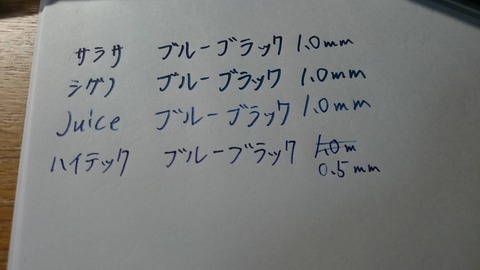 サラサ ブルーブラック 1.0mm
シグノ ブルーブラック 1.0mm
Juice ブルーブラック 1.0mm
ハイテック ブルーブラック 1.0m
0.5mm